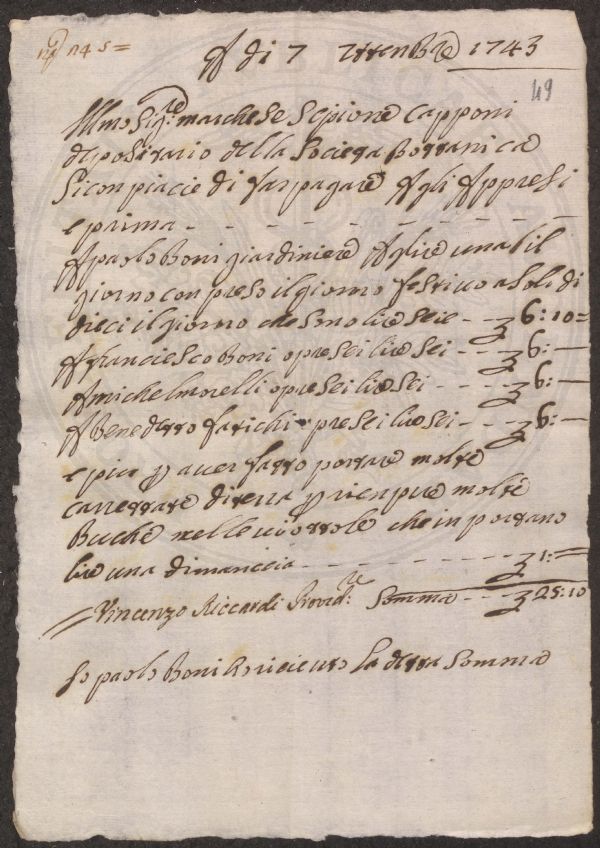 n° 45 =
A di 7 7ttenbre 1743
49
Illmo Sigre: marchese Scipione Capponi
depositario della Societa Bottanica
Si conpiacie di far pagare A gli Appresi
e prima - - - - - - - - - -
A paolo Boni giardiniere A lire una il
giorno conpreso il giorno festivo a soldi
dieci il giorno che sono lire sei e - - £ 6: 10 =
A Franciesco Boni opre sei lire sei - - - £ 6: —
A michel morelli opre sei lire sei - - - £ 6: —
A Benedetto farichi opre sei lire sei - - - £ 6: —
e piu p aver fatto portare molte
carrettate di terra p rienpire molte
Buche nelle viottole che in portano
lire una di mancia - - - - - - - £ 1: =
Vincenzo Riccardi Provd.re Somma - - - £ 25: 10
Io paolo Boni o ricieuto la detta Somma